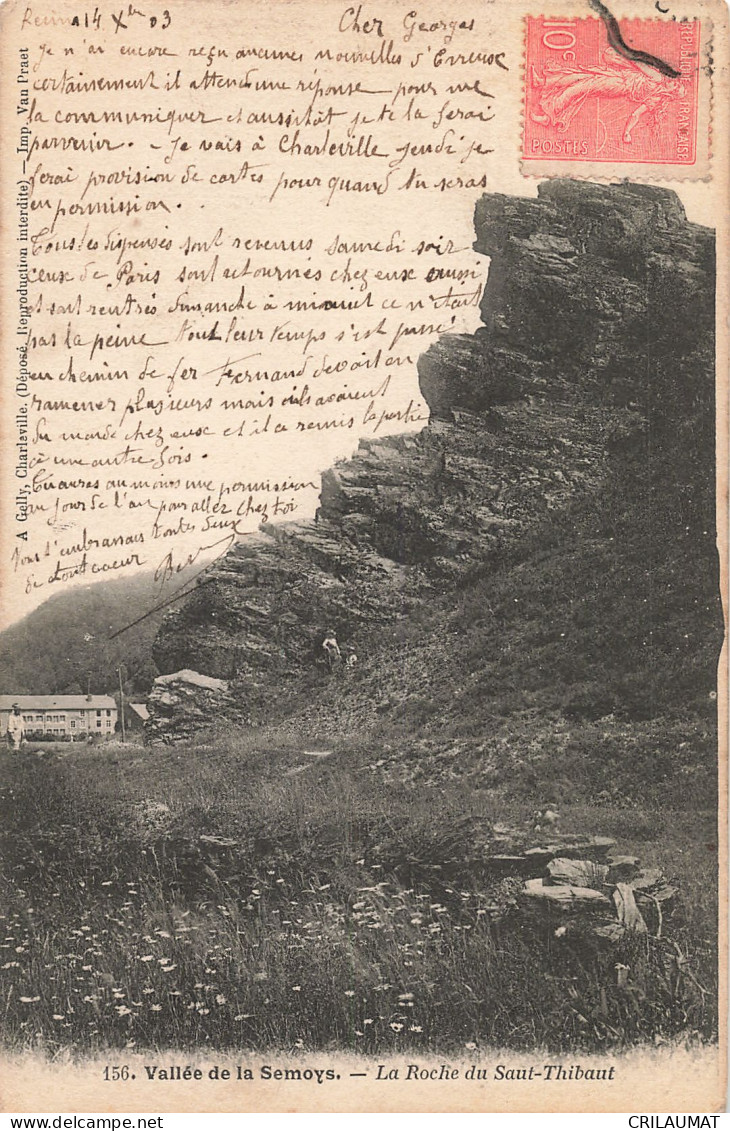 Reims 14 Xbre 03
Cher Georges
Je n'ai encore reçu aucunes nouvelles d'Evreux
certainement il attend une réponse pour me
la communiquer et aussitôt je te la ferai
parvenir. - Je vais à Charleville jeudi je
ferai provision de cartes pour quand tu seras
en permission.
Tous les dispensés sont revenus samedi soir
ceux de Paris sont retournés chez eux aussi
et sont rentrés dimanche à minuit ce n'était
pas la peine tout leur temps s'est passé
en chemin de fer Fernand devait en
ramener plusieurs mais ils avaient
du monde chez eux et il a remis la partie
à une autre fois.
Tu auras au moins une permission
au jour de l'an pour aller chez toi
Nous t'embrassons toutes deux
de tout cœur
A Gelly, Charleville. (Déposé. Reproduction interdite) — Imp. Van Praet
10c
RÉPUBLIQUE FRANÇAISE
POSTES
156. Vallée de la Semoys. — La Roche du Saut-Thibaut
CRILAUMAT